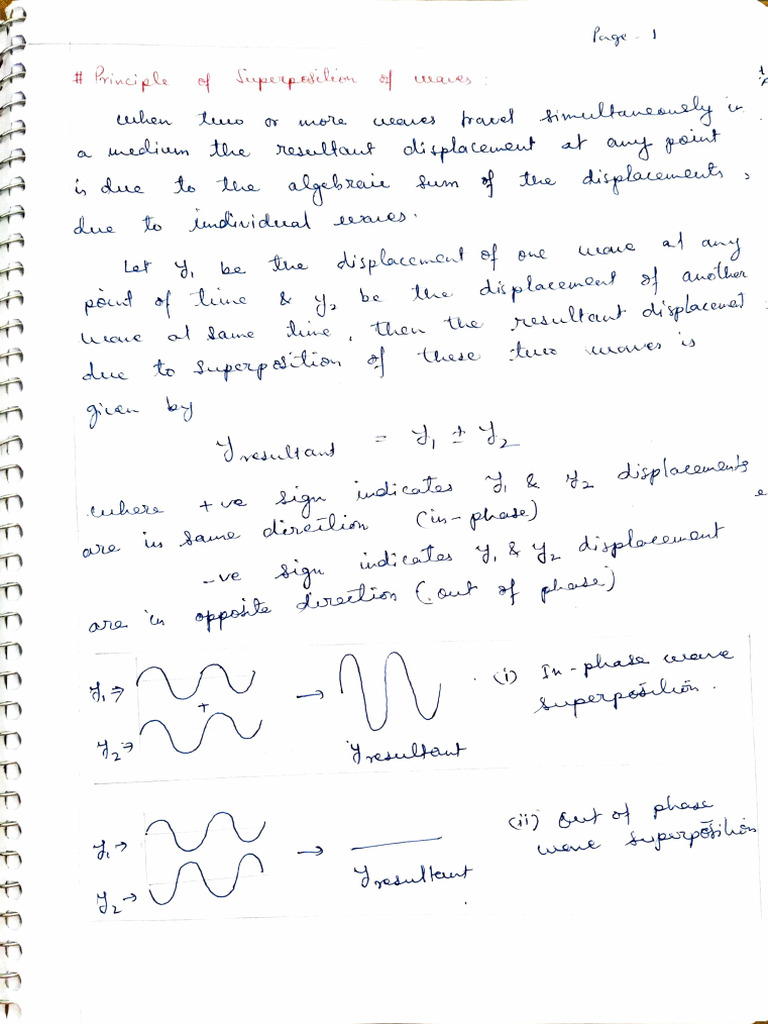 Page - 1
# Principle of Superposition of waves:
When two or more waves travel simultaneously in
a medium the resultant displacement at any point
is due to the algebraic sum of the displacements,
due to individual waves.
Let y₁ be the displacement of one wave at any
point of time & y₂ be the displacement of another
wave at same time, then the resultant displacement
due to superposition of these two waves is
given by
y resultant = y₁ ± y₂
where +ve sign indicates y₁ & y₂ displacements
are in same direction (in-phase)
-ve sign indicates y₁ & y₂ displacement
are in opposite direction (out of phase)
y₁ ⇒ → (i) In-phase wave
+ superposition.
y₂ ⇒ y resultant
y₁ → → (ii) Out of phase
wave superposition
y₂ → y resultant